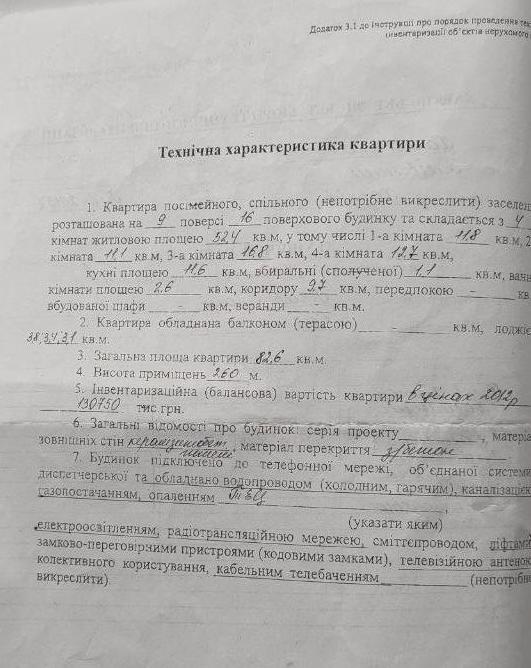 Додаток 3.1 до Інструкції про порядок проведення тех
інвентаризації об'єктів нерухомого
Технічна характеристика квартири
1. Квартира посімейного, спільного (непотрібне викреслити) заселен
розташована на 9 поверсі 16 поверхового будинку та складається з 4
кімнат житловою площею 52,4 кв.м, у тому числі 1-а кімната 11,8 кв.м, 2
кімната 11,1 кв.м, 3-а кімната 16,8 кв.м, 4-а кімната 12,7 кв.м,
кухні площею 11,6 кв.м, вбиральні (сполученої) 1.1 кв.м, ван
кімнати площею 2.6 кв.м, коридору 9.7 кв.м, передпокою - кв
вбудованої шафи кв.м, веранди - кв.м.
2. Квартира обладнана балконом (терасою) - кв.м, лоджіє
3.8; 3,4; 3.1 кв.м.
3. Загальна площа квартири 82,6 кв.м.
4. Висота приміщень 2.60 м.
5. Інвентаризаційна (балансова) вартість квартири в цінах 2012р
130750 тис.грн.
6. Загальні відомості про будинок: серія проекту , матеріа
зовнішніх стін керамзитобет. , матеріал перекриття з/бетон
панелі
7. Будинок підключено до телефонної мережі, об'єднаної системи
диспетчерської та обладнано водопроводом (холодним, гарячим), каналізаціє
газопостачанням, опаленням ТЕЦ ,
(указати яким)
електроосвітленням, радіотрансляційною мережею, сміттєпроводом, ліфтами
замково-переговірними пристроями (кодовими замками), телевізійною антеною
колективного користування, кабельним телебаченням (непотрібне
викреслити).